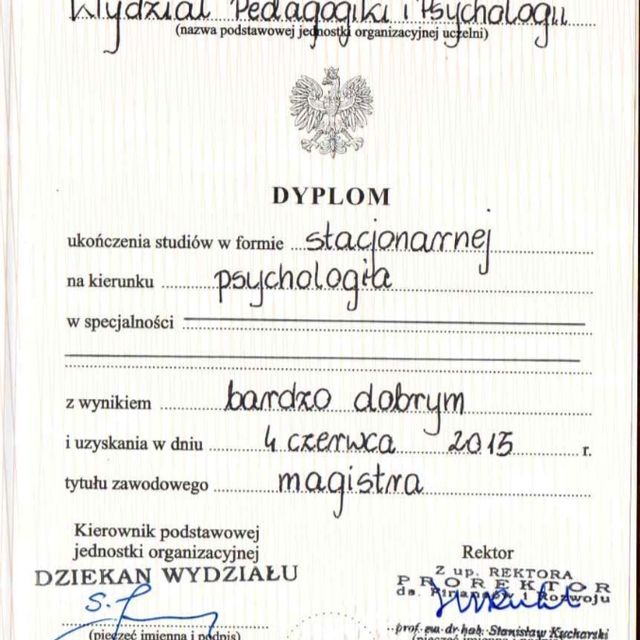 Wydział Pedagogiki i Psychologii
(nazwa podstawowej jednostki organizacyjnej uczelni)
DYPLOM
ukończenia studiów w formie stacjonarnej
na kierunku psychologia
w specjalności
z wynikiem bardzo dobrym
i uzyskania w dniu 4 czerwca 2015 r.
tytułu zawodowego magistra
Kierownik podstawowej
jednostki organizacyjnej
DZIEKAN WYDZIAŁU
(pieczęć imienna i podpis)
Rektor
Z up. REKTORA
PROREKTOR
ds. Finansów i Rozwoju
prof. dr hab. Stanisław Kucharski
(pieczęć imienna